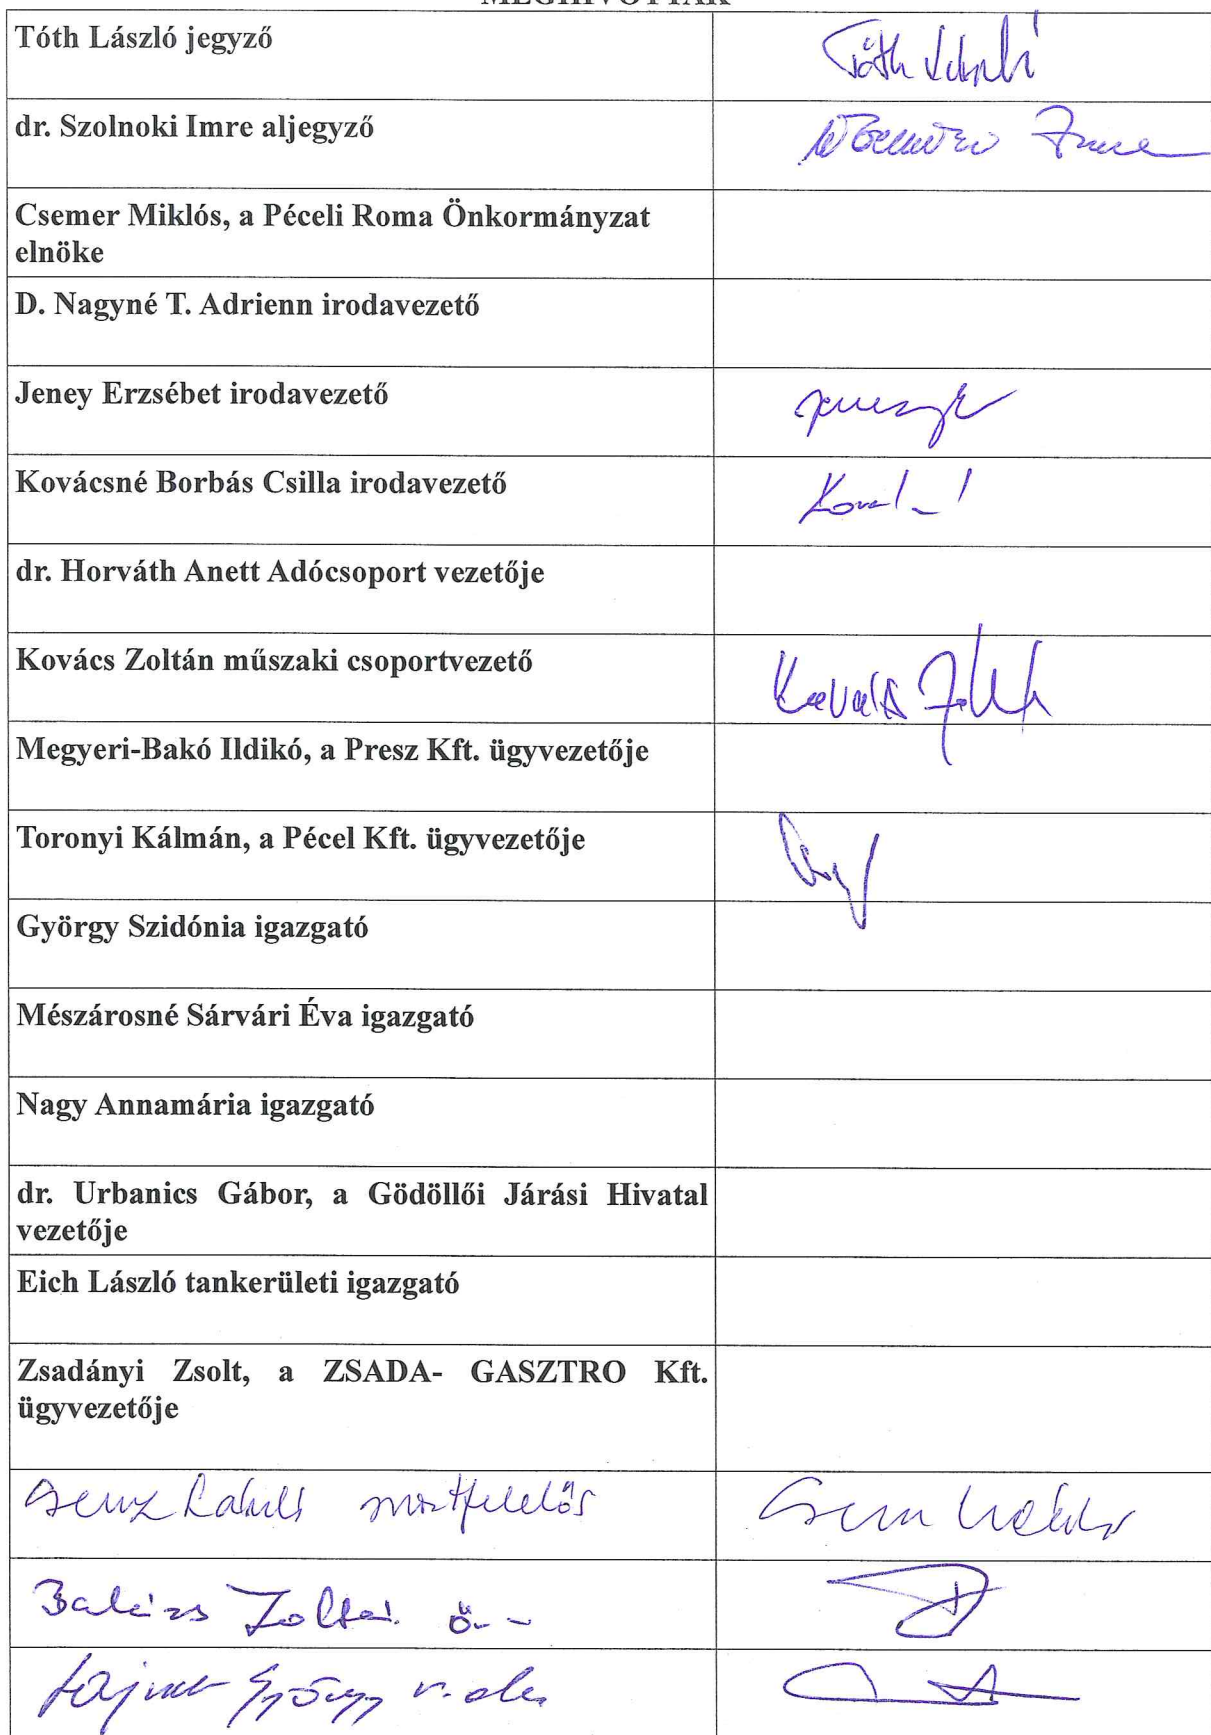 MEGHÍVOTTAK
Tóth László jegyző
Tóth László
dr. Szolnoki Imre aljegyző
Imre
Csemer Miklós, a Péceli Roma Önkormányzat
elnöke
D. Nagyné T. Adrienn irodavezető
Jeney Erzsébet irodavezető
Kovácsné Borbás Csilla irodavezető
dr. Horváth Anett Adócsoport vezetője
Kovács Zoltán műszaki csoportvezető
Kovács Zoltán
Megyeri-Bakó Ildikó, a Presz Kft. ügyvezetője
Toronyi Kálmán, a Pécel Kft. ügyvezetője
György Szidónia igazgató
Mészárosné Sárvári Éva igazgató
Nagy Annamária igazgató
dr. Urbanics Gábor, a Gödöllői Járási Hivatal
vezetője
Eich László tankerületi igazgató
Zsadányi Zsolt, a ZSADA- GASZTRO Kft.
ügyvezetője
Balázs Zoltán
György